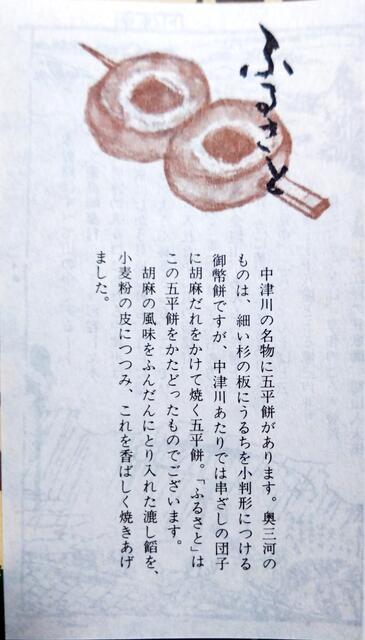 ふるさと
中津川の名物に五平餅があります。奥三河の
ものは、細い杉の板にうるちを小判形につける
御幣餅ですが、中津川あたりでは串ざしの団子
に胡麻だれをかけて焼く五平餅。「ふるさと」は
この五平餅をかたどったものでございます。
胡麻の風味をふんだんにとり入れた漉し餡を、
小麦粉の皮につつみ、これを香ばしく焼きあげ
ました。